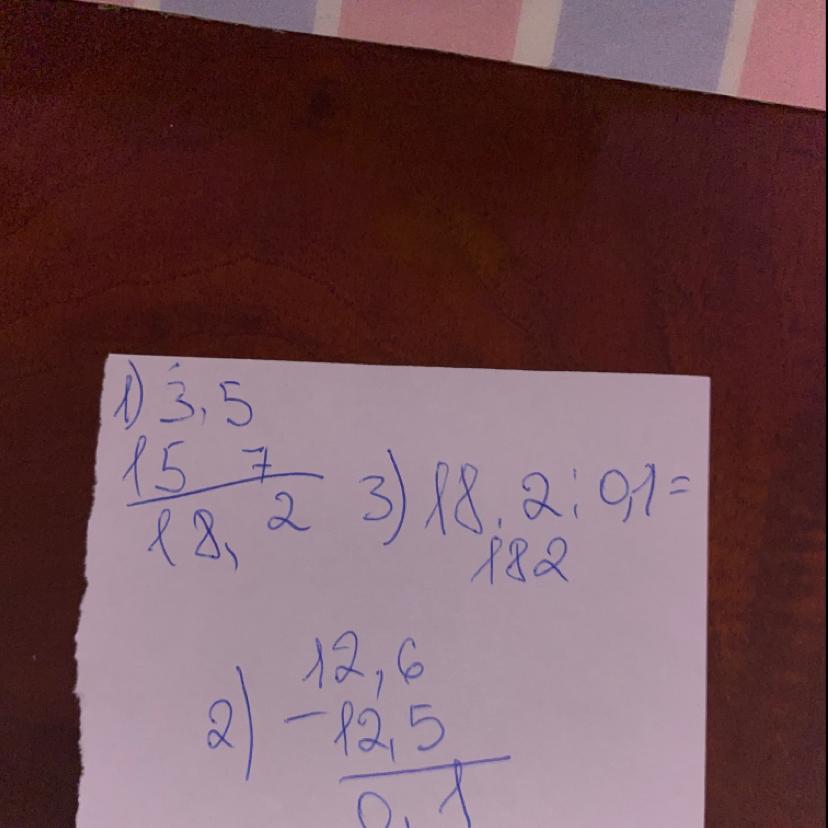 1) 3,5
15 7
18, 2
3) 18,2:0,1=
182
2) 12,6
-12,5
0,1